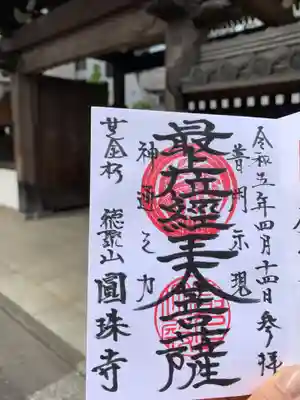 令和五年四月十四日 参拝
普門示現
最上位經王大菩薩
神通之力
芝金杉 徳聚山 圓珠寺